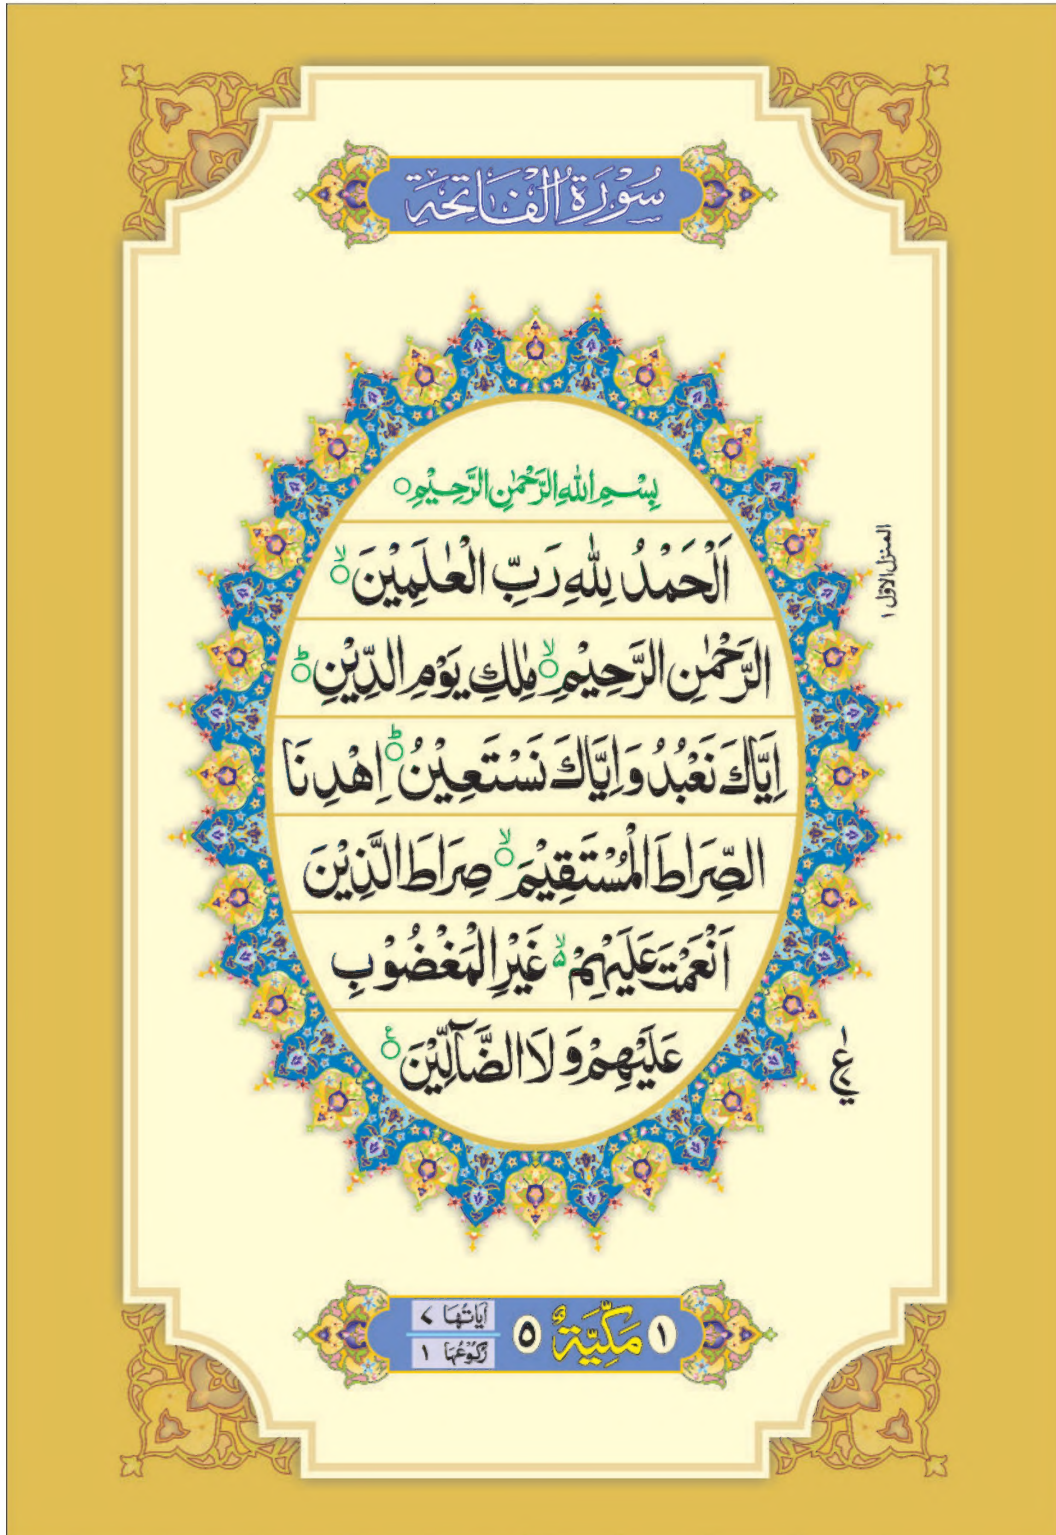 سُوْرَةُ الْفَاتِحَةِ
بِسْمِ اللهِ الرَّحْمٰنِ الرَّحِيْمِ○
اَلْحَمْدُ لِلّٰهِ رَبِّ الْعٰلَمِيْنَ○ۙ
الرَّحْمٰنِ الرَّحِيْمِ○ۙ مٰلِكِ يَوْمِ الدِّيْنِ○ؕ
اِيَّاكَ نَعْبُدُ وَاِيَّاكَ نَسْتَعِيْنُ○ؕ اِهْدِنَا
الصِّرَاطَ الْمُسْتَقِيْمَ○ۙ صِرَاطَ الَّذِيْنَ
اَنْعَمْتَ عَلَيْهِمْ ۵ۙ غَيْرِ الْمَغْضُوْبِ
عَلَيْهِمْ وَلَا الضَّآلِّيْنَ○ع
المنزل الاوّل ۱
ع
۱ مَكِّيَّةٌ ۵
اٰيَاتُهَا ۷
رُكُوْعُهَا ۱